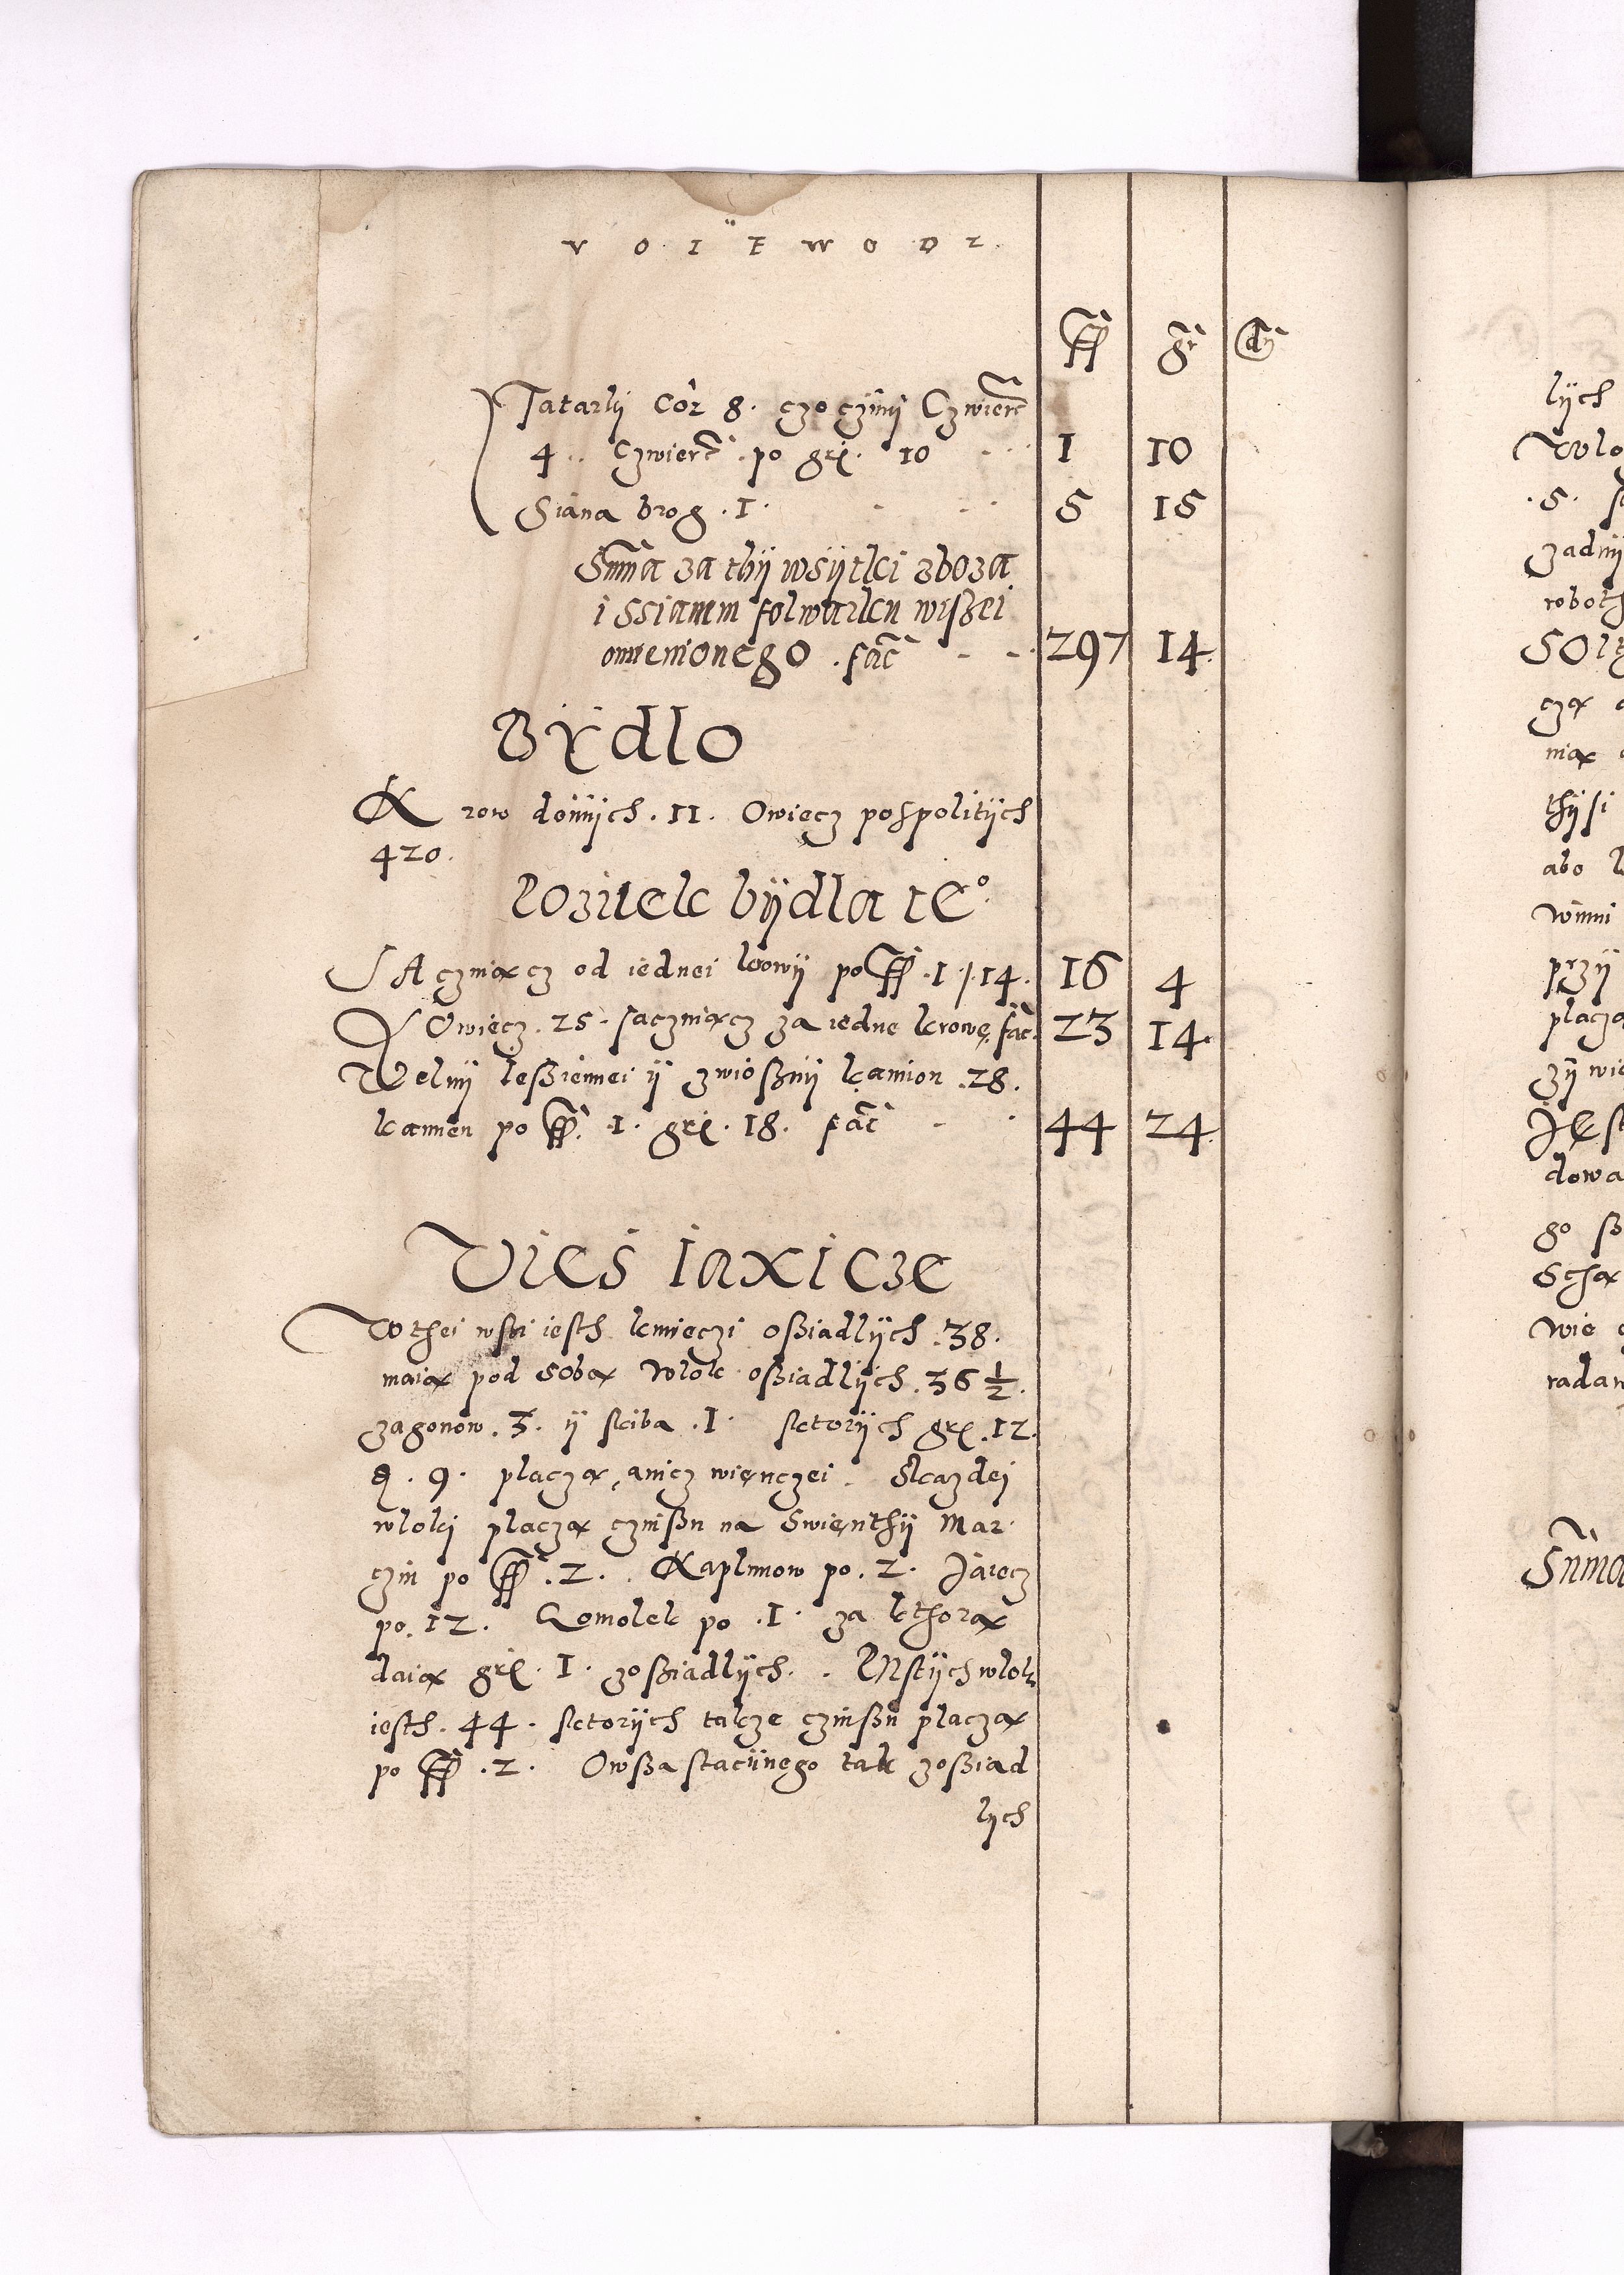 V O I Ë W O D Z.
ff gr d
Tatarkÿ Cor 8. czo czÿni Czwierc
4. Czwierc po grꝭ 10 - - 1 10
Siana brog .1. - - - 5 15
Sm̃a za thÿ wsÿtki zboza
i ssianem folwarku wiszei
omienionego . fac̃ - - 297 14.
BẎdlo
Krow doinÿch . 11. Owięcz pospolitÿch
420.
Pozitek bÿdla te°.
SAczniącz od iednei krowÿ po ff .1./.14. 16 4
Owięcz . 25 . saczniącz za iedne krowę, fac̃. 23 14.
Welnÿ Ießiennei ÿ zwioßnÿ kamion .28.
kamien po ff .1. grꝭ .18. fac̃ - - 44 24.
Vies Iaxicze
W thei wsi iesth kmieczi oßiadlÿch .38.
maią pod sobą Wlok oßiadlÿch .36 1/2.
zagonow .3. ÿ skiba .1. sktorÿch grꝭ .12.
₰ . 9. placzą, anicz więnczei. Skazdei
wloki placzą czinßu na Swięnthÿ Mar-
czin po ff .2. . Kaplunow po .2. Jaiecz
po .12. Gomolek po .1. za kthorą
daią grꝭ .1. zoßiadlÿch. . PUstÿch wlok
iesth .44. sktorÿch takze czinßu placzą
po ff .2. Owßa stacÿinego tak zoßiad
lych
lÿch
Wlo
.5. s
zadnÿ
roboth
SOlt
czą
nią
thÿsi
abo
winni
przÿ
placzą
zÿ wie
JESt
dowa
go ß
Schą
wie
radan
Sum̃a